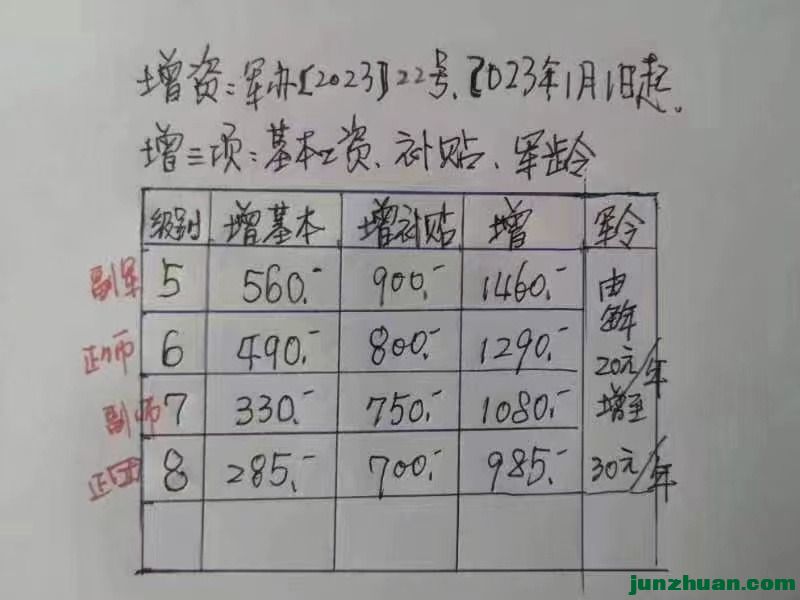 增资:军办〔2023〕22号、2023年1月1日起.
增三项:基本工资、补贴、军龄
级别 增基本 增补贴 增 军令
副军 5 560.- 900.- 1460.- 由每年
正师 6 490.- 800.- 1290.- 20元/年
副师 7 330.- 750.- 1080.- 增至
正团 8 285.- 700.- 985.- 30元/年
junzhuan.com